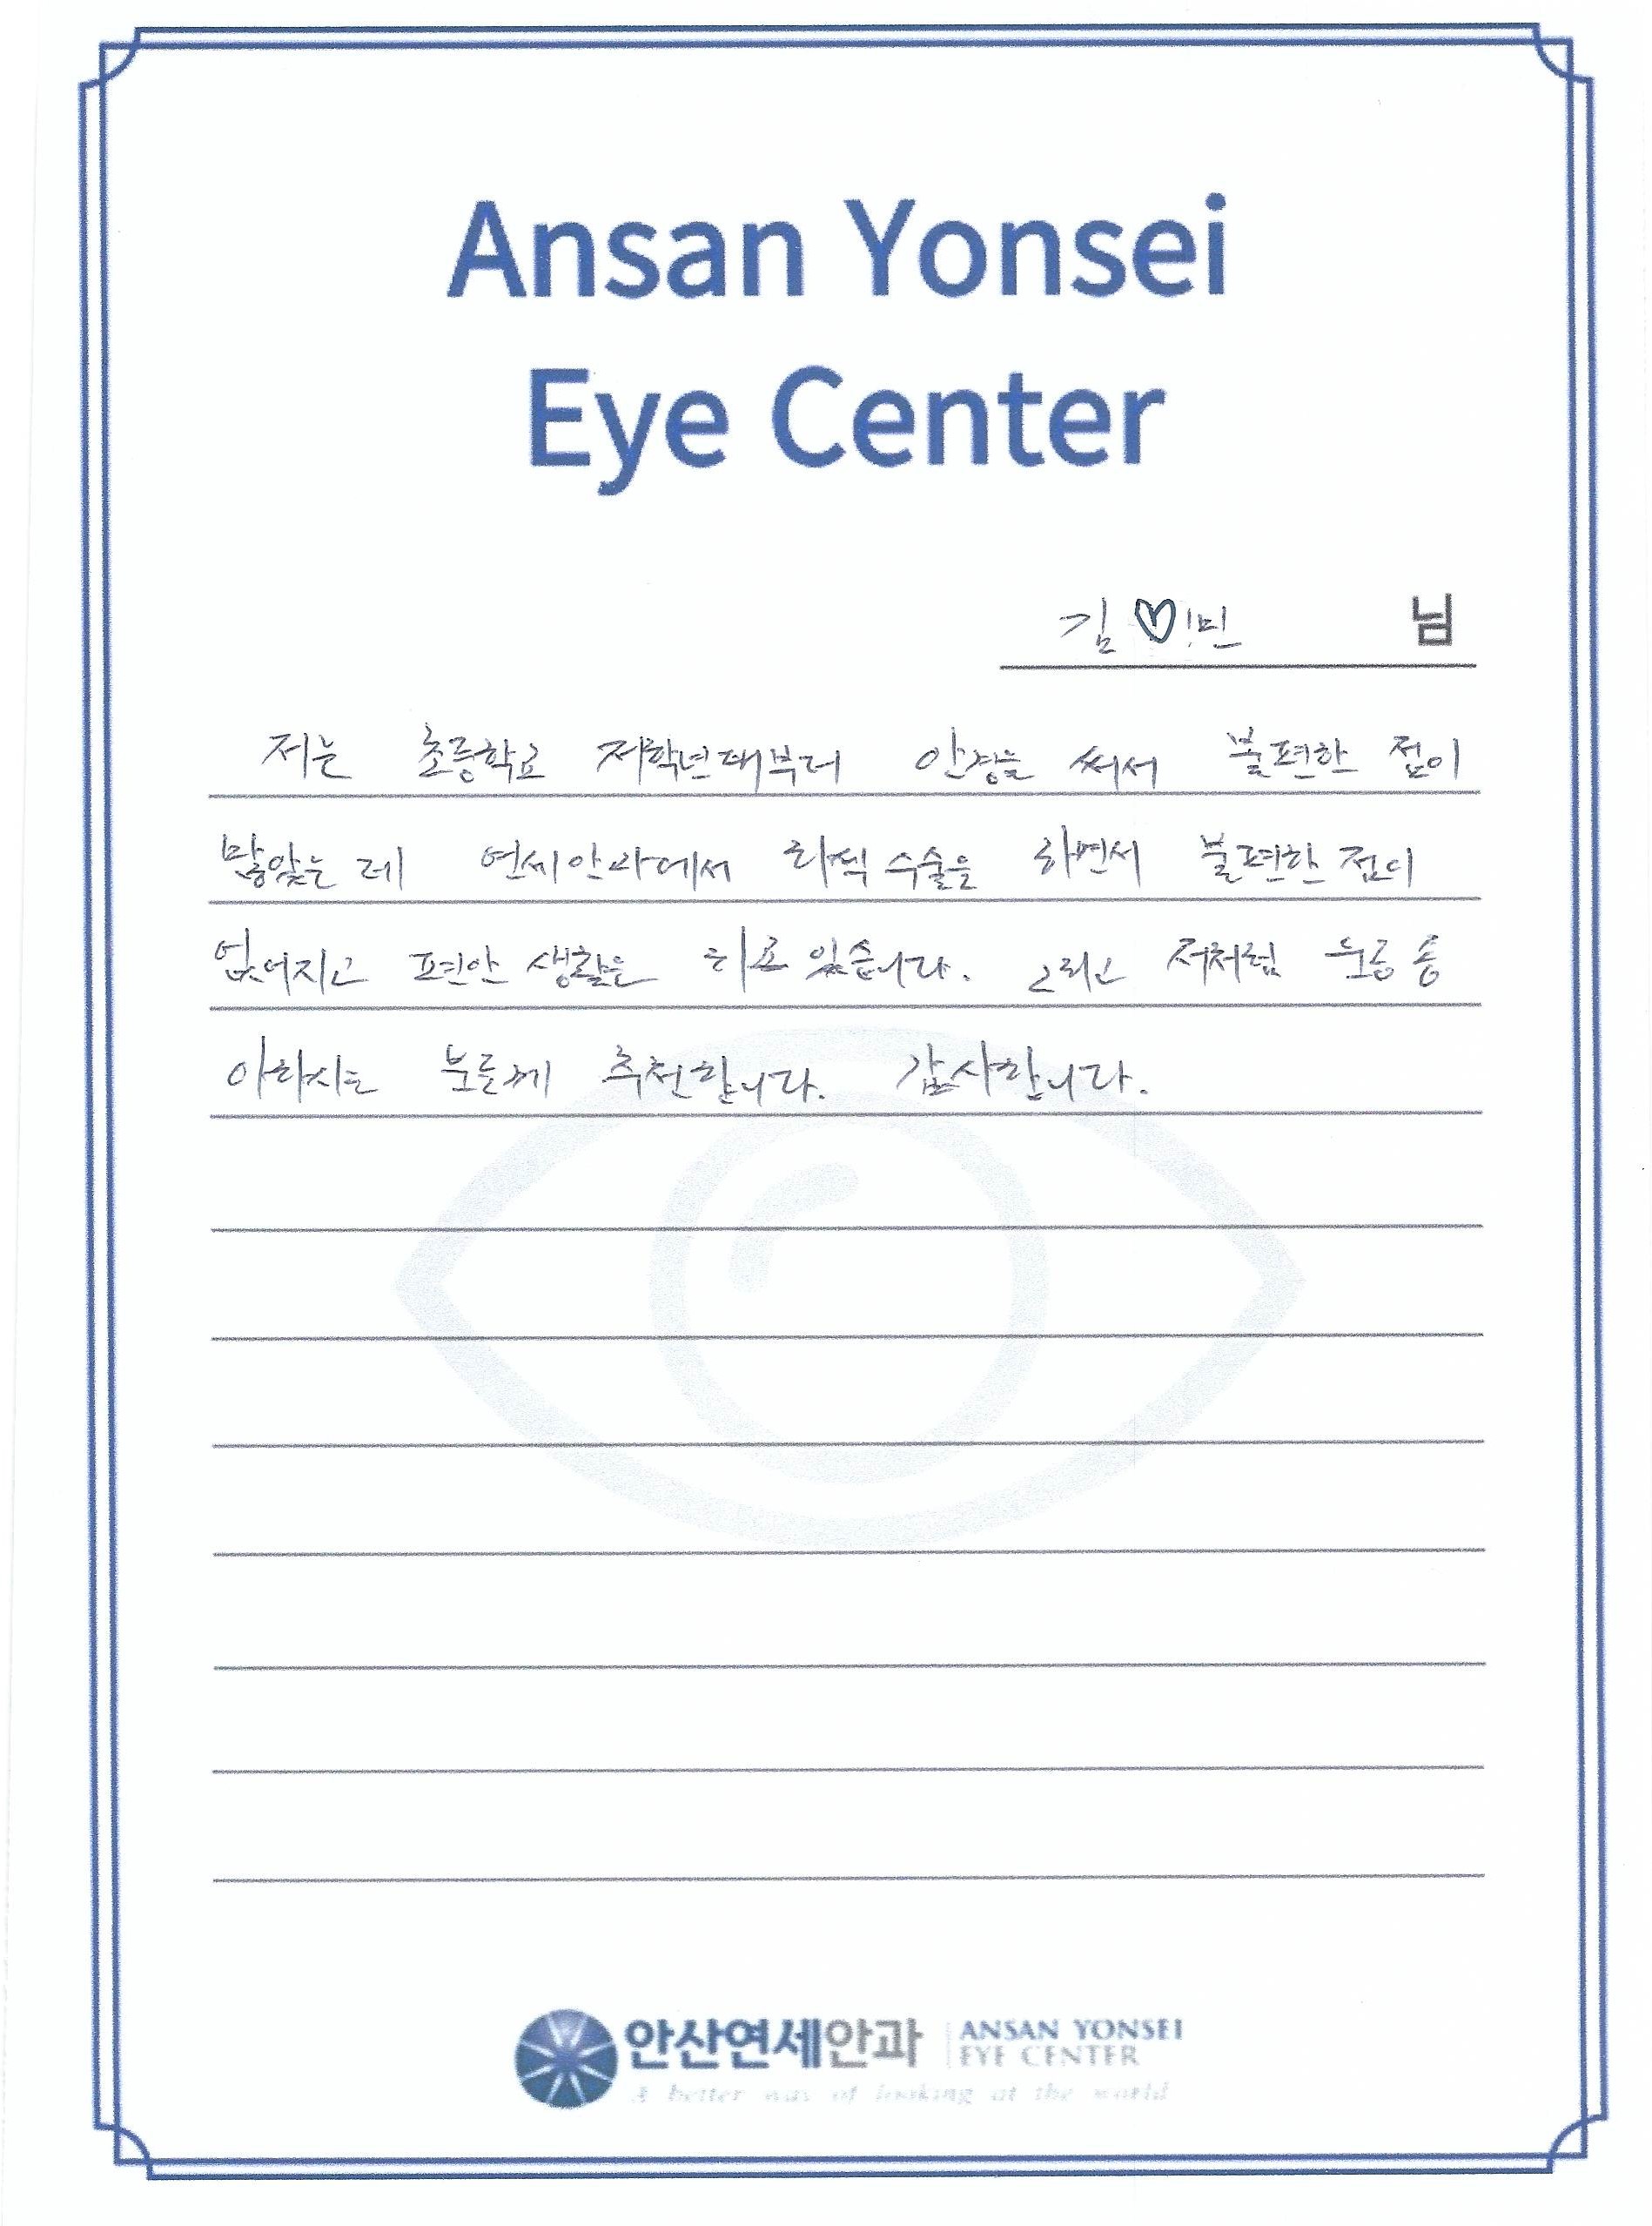 Ansan Yonsei
Eye Center
김♡민 님
저는 초등학교 저학년때부터 안경을 써서 불편한 점이
많았는데 연세안과에서 라식 수술을 하면서 불편한 점이
없어지고 편안 생활은 하고 있습니다. 그리고 저처럼
이하시는 분들께 추천합니다. 감사합니다.
안산연세안과 ANSAN YONSEI
EYE CENTER
A better way of looking at the world